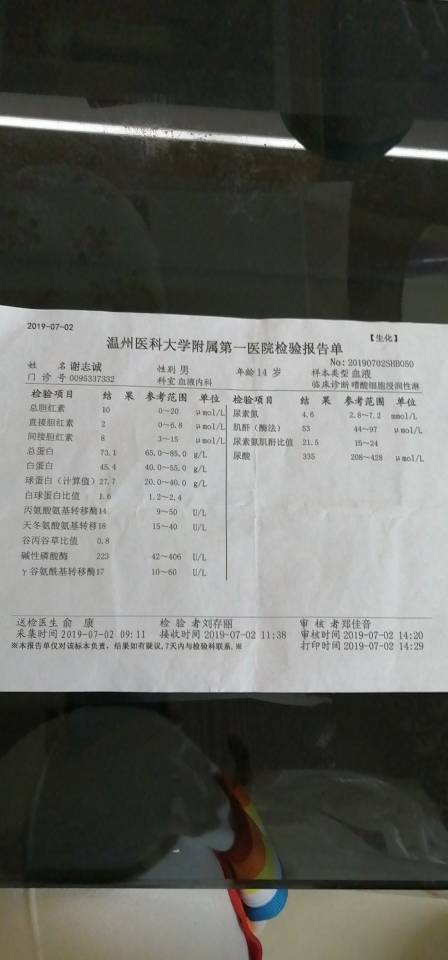 2019-07-02
【生化】
温州医科大学附属第一医院检验报告单
No: 20190702SHB050
姓 名 谢志诚 性别 男 年龄 14 岁 样本类型 血液
门 诊 号 0095337332 科室 血液内科 临床诊断 嗜酸细胞浸润性淋
检验项目 结 果 参考范围 单位
总胆红素 10 0~20 μmol/L
直接胆红素 2 0~6.8 μmol/L
间接胆红素 8 3~15 μmol/L
总蛋白 73.1 65.0~85.0 g/L
白蛋白 45.4 40.0~55.0 g/L
球蛋白（计算值） 27.7 20.0~40.0 g/L
白球蛋白比值 1.6 1.2~2.4
丙氨酸氨基转移酶 14 9~50 U/L
天冬氨酸氨基转移 18 15~40 U/L
谷丙谷草比值 0.8
碱性磷酸酶 223 42~406 U/L
γ谷氨酰基转移酶 17 10~60 U/L
检验项目 结 果 参考范围 单位
尿素氮 4.6 2.8~7.2 mmol/L
肌酐（酶法） 53 44~97 μmol/L
尿素氮肌酐比值 21.5 15~24
尿酸 335 208~428 μmol/L
送检医生 俞 康 检 验 者 刘存丽 审 核 者 郑佳音
采集时间 2019-07-02 09:11 接收时间 2019-07-02 11:38 审核时间 2019-07-02 14:20
※本报告单仅对该标本负责，结果如有疑议，7天内与检验科联系.※ 打印时间 2019-07-02 14:29